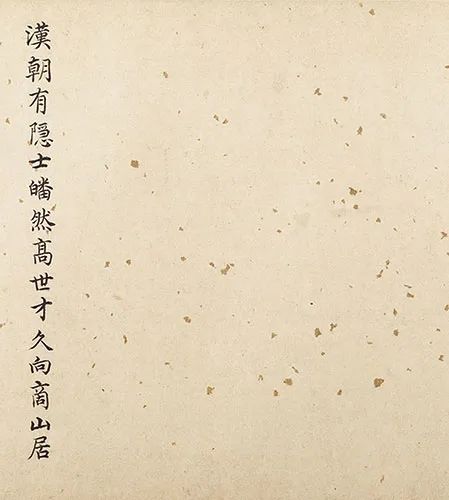 漢朝有隱士皤然髙世才久向商山居